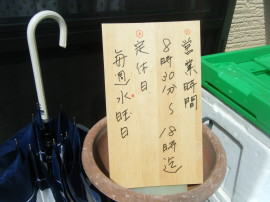 営業時間
8時30分～18時迄
定休日
毎週水曜日